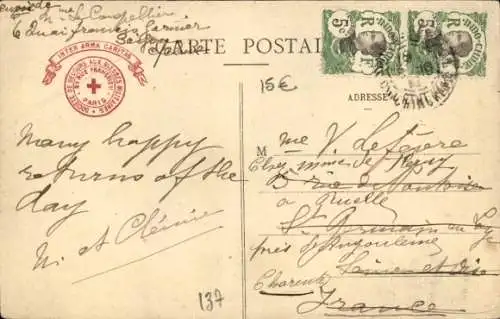 CARTE POSTALE
6 Quai Francis Garnier
INTER ARMA CARITAS
SOCIÉTÉ DE SECOURS AUX BLESSÉS MILITAIRES
PARIS
Many happy
returns of the
day
Ni et Clémie
137
5c INDO-CHINE
5c INDO-CHINE
15€
ADRESSE
M me V. Lefèvre
Chez mme de
5 rue de
à Ruelle
St Germain en Laye
près d'Angoulême
Seine et Oise
Charente
France